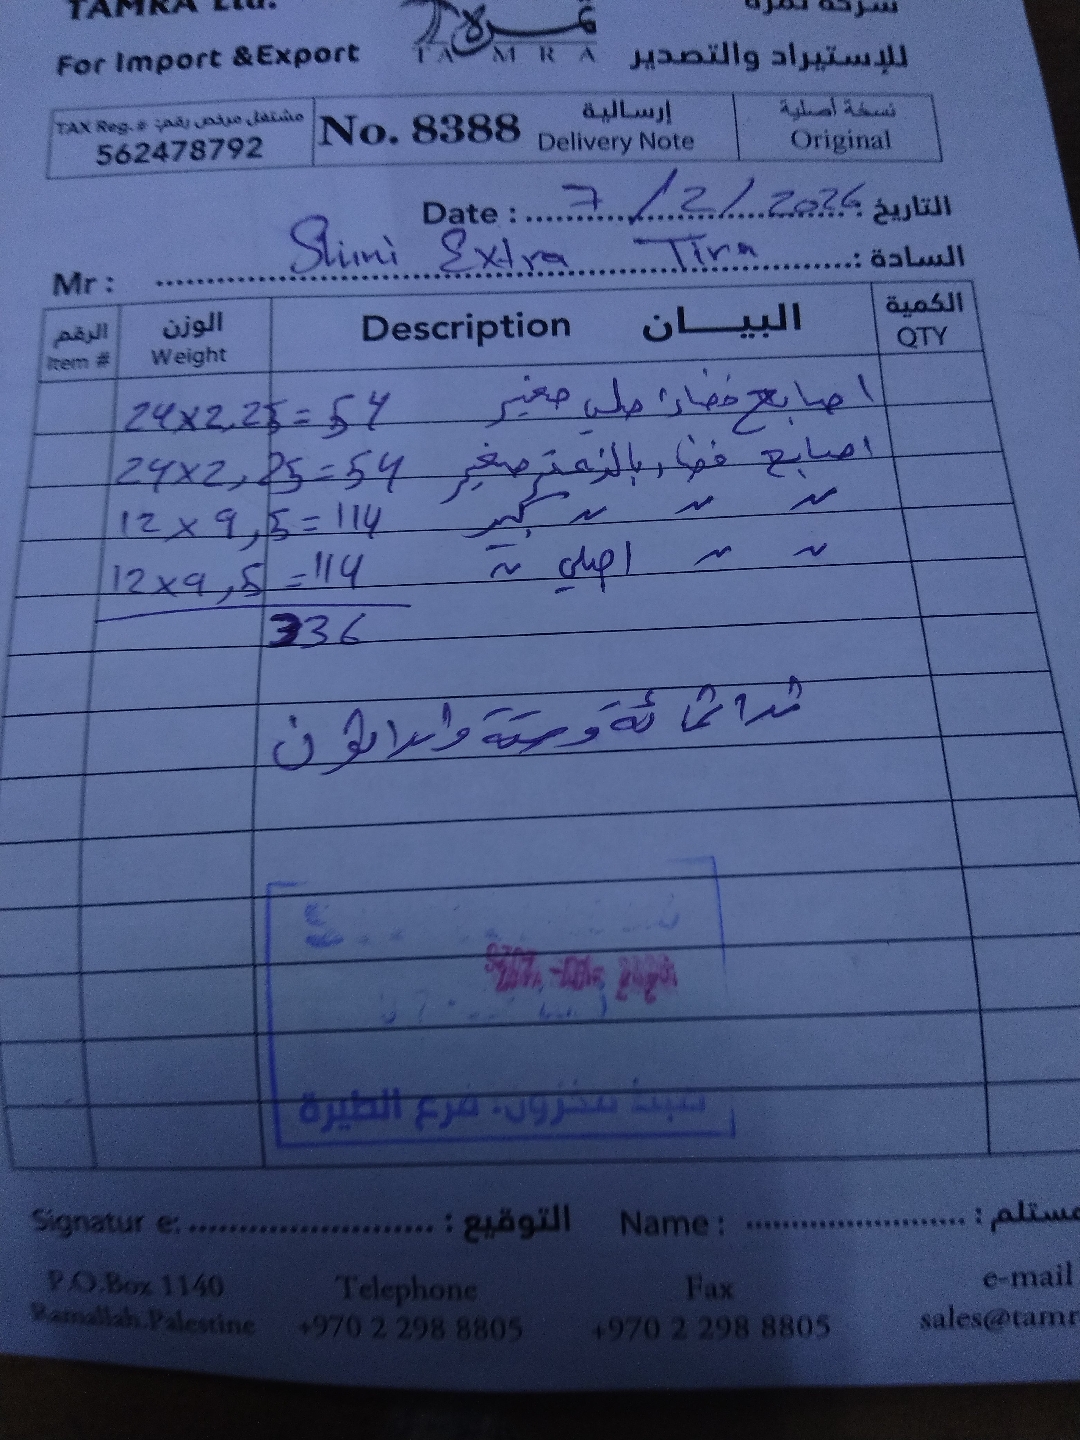 TAMRA Ltd. شركة تمرة
For Import &Export تمرة TAMRA للإستيراد والتصدير
TAX Reg. # مشتغل مرخص رقم: 562478792 No. 8388 إرسالية Delivery Note نسخة أصلية Original
Date : 7/2/2026 التاريخ :
Mr : Slimi Extra Tira السادة :
الرقم Item # الوزن Weight Description البيــــان الكمية QTY
24x2.25=54 اصابع خضار اصلي صغير
24x2,25=54 اصابع خضار بالزعتر صغير
12 x 9,5=114 〃 〃 〃 كبير
12x9,5=114 〃 〃 اصلي 〃
336
ثلاثمائة وستة وثلاثون
فرع الطيرة
Signatur e: التوقيع : Name : مستلم :
P.O.Box 1140 Telephone Fax e-mail
Ramallah.Palestine +970 2 298 8805 +970 2 298 8805 sales@tamr